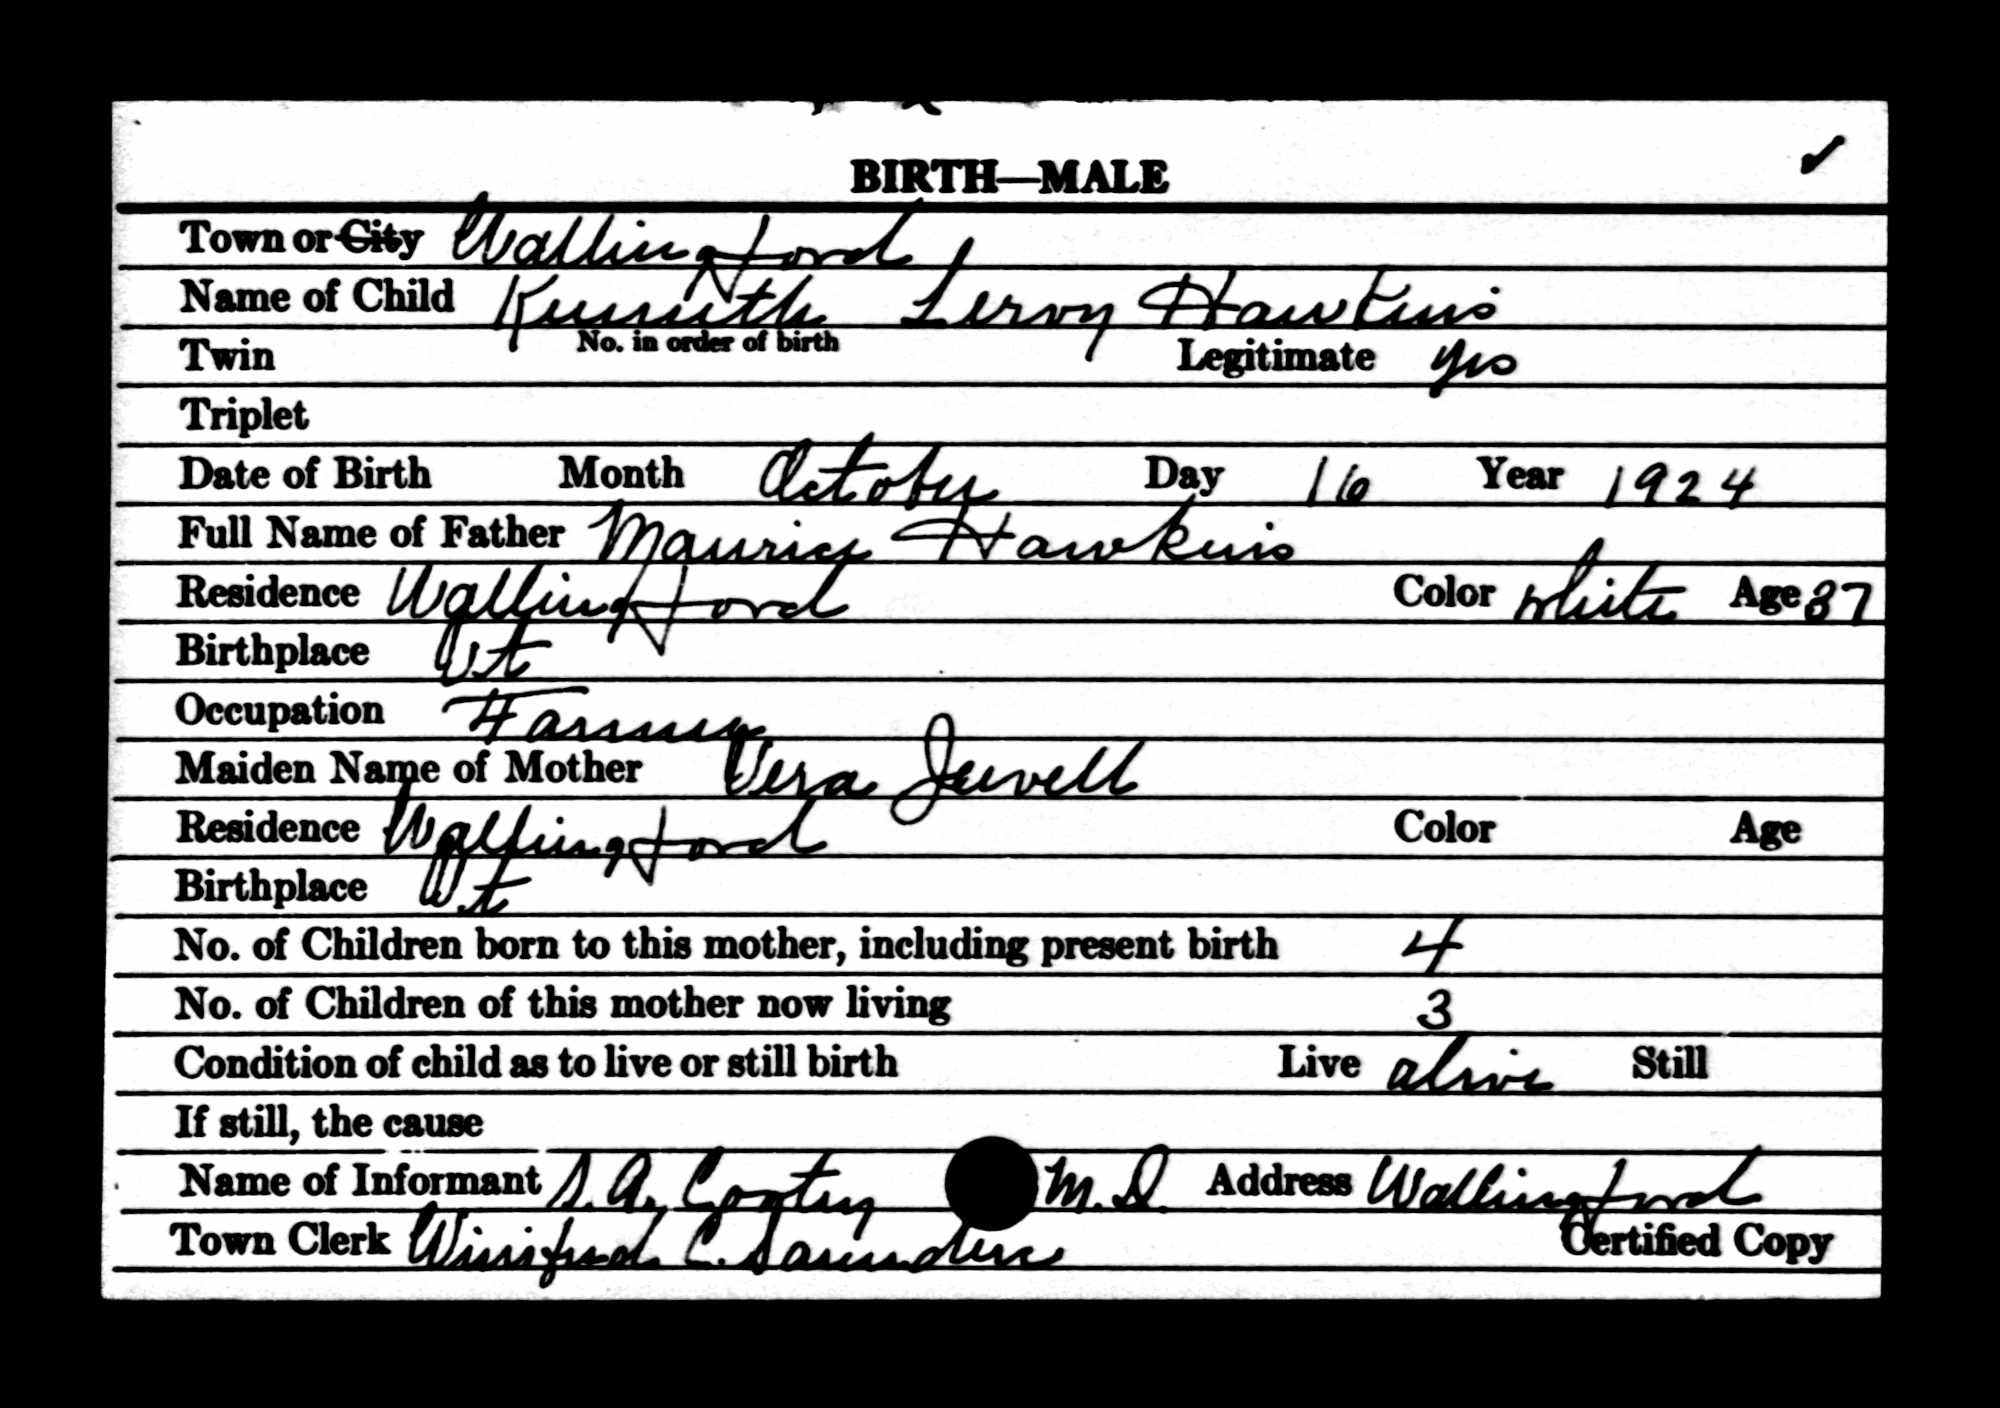 BIRTH—MALE ✓
Town or City Wallingford
Name of Child Kenneth Leroy Hawkins
Twin No. in order of birth Legitimate yes
Triplet
Date of Birth Month October Day 16 Year 1924
Full Name of Father Maurice Hawkins
Residence Wallingford Color white Age 37
Birthplace Vt
Occupation Farmer
Maiden Name of Mother Vera Jewell
Residence Wallingford Color Age
Birthplace Vt
No. of Children born to this mother, including present birth 4
No. of Children of this mother now living 3
Condition of child as to live or still birth Live alive Still
If still, the cause
Name of Informant S. A. Cootey M. D. Address Wallingford
Town Clerk Winifred C. Saunders Certified Copy